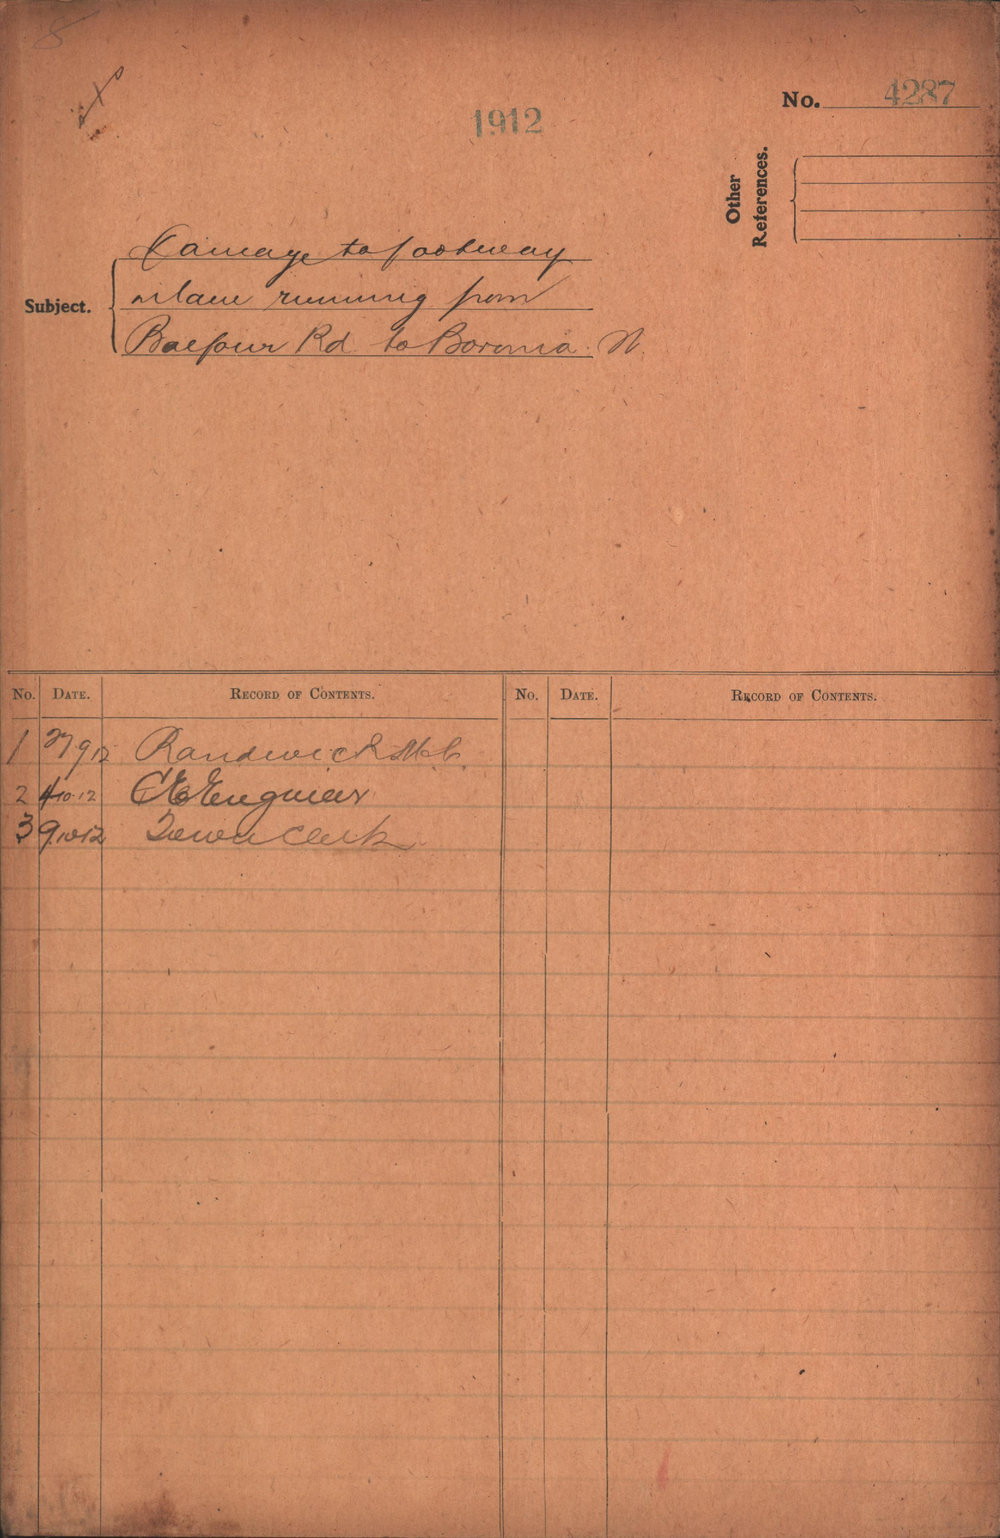 8
1912
No. 4287
Other
References.
Subject.
Damage to footway
or lane running from
Balfour Rd to Boronia St.
No. DATE. RECORD OF CONTENTS. No. DATE. RECORD OF CONTENTS.
1 27 9 12 Randwick M.C.
2 4.10.12 C E Engineer
3 9.10.12 Town Clerk